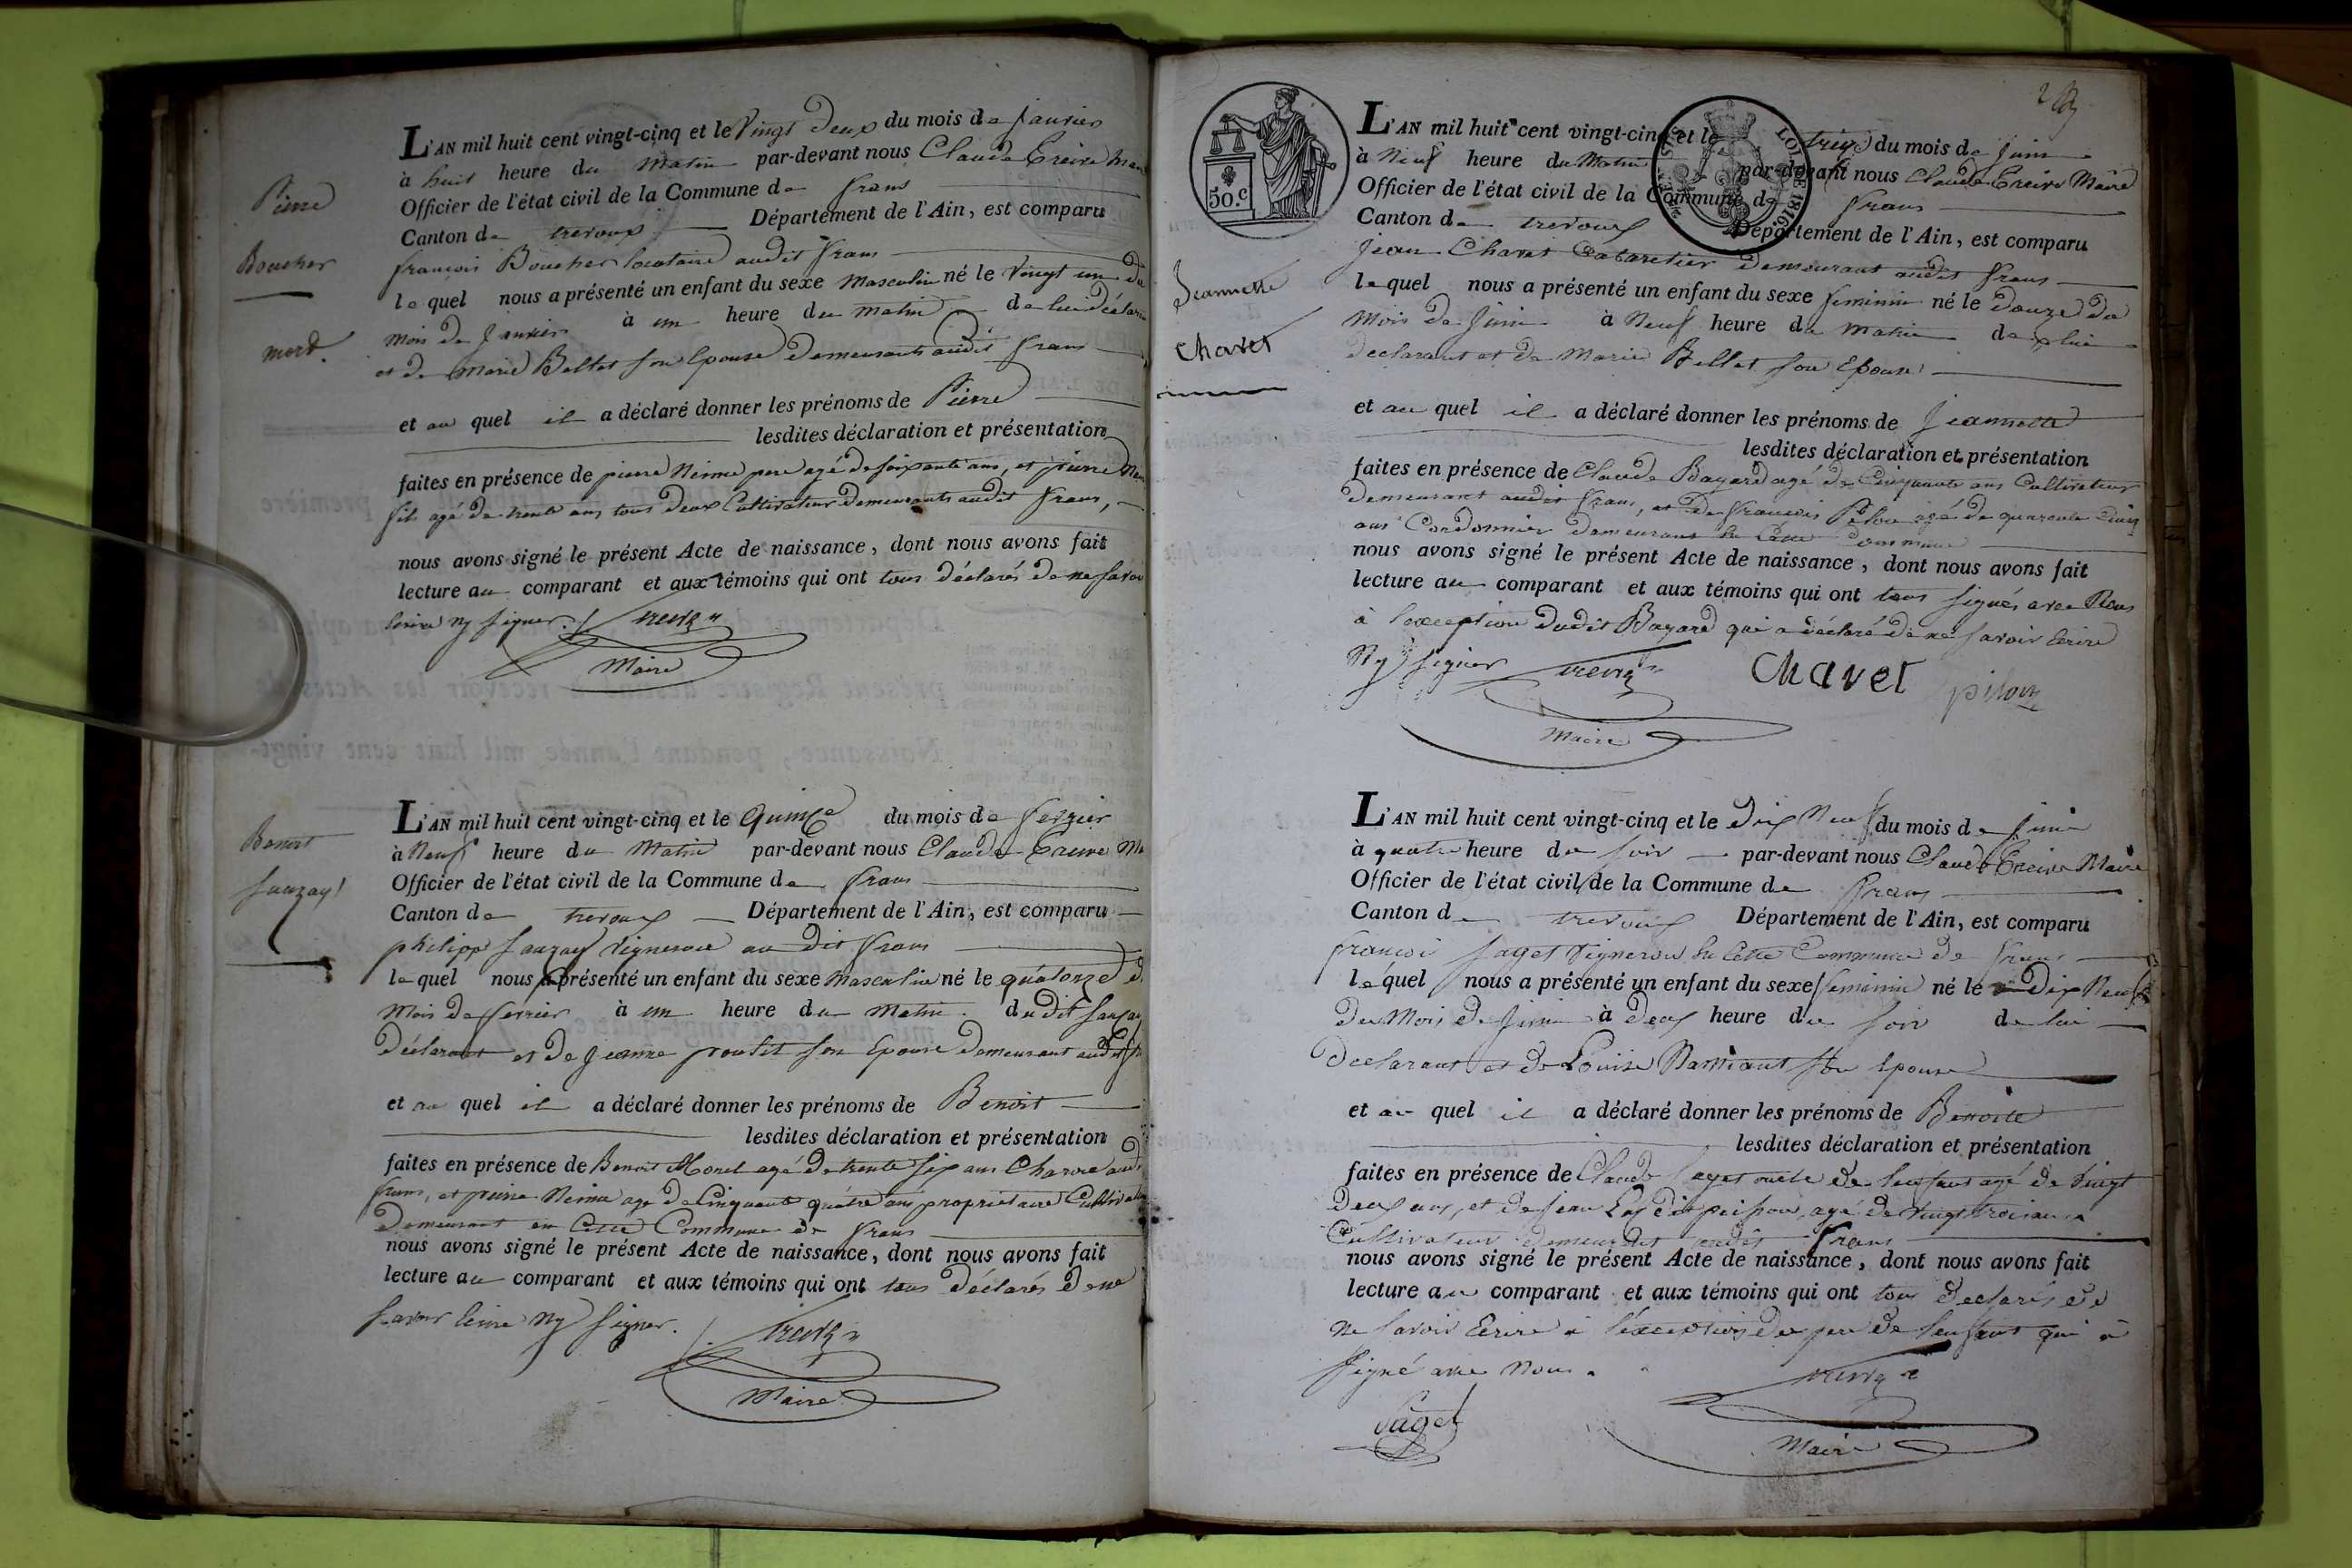 L'AN mil huit cent vingt-cinq et le Vingt deux du mois de janvier
à huit heure du matin par-devant nous Claude
Officier de l'état civil de la Commune de frans
Canton de trevoux Département de l'Ain, est comparu
françois Boucher locataire audit frans
le quel nous a présenté un enfant du sexe masculin né le Vingt un du
mois de Janvier à un heure du matin de lui déclarant
et de Marie Bellet son Epouse demeurants audit frans
et au quel il a déclaré donner les prénoms de Pierre
lesdites déclaration et présentation
faites en présence de pierre Nesme pere agé de soixante ans, et pierre
fils agé de trente ans tous deux Cultivateur demeurants audit frans,
nous avons signé le présent Acte de naissance, dont nous avons fait
lecture au comparant et aux témoins qui ont tous déclarés de ne savoir
Ecrire ny signer.
Maire
Pierre
Boucher
mort.
L'AN mil huit cent vingt-cinq et le quinze du mois de fevrier
à Neuf heure du Matin par-devant nous Claude
Officier de l'état civil de la Commune de frans
Canton de trevoux Département de l'Ain, est comparu
philippe sauzay Vigneron au dit frans
le quel nous a présenté un enfant du sexe Masculin né le quatorze d
Mois de fevrier à un heure du Matin dudit sauzay
Déclarant et de Jeanne son Epouse demeurant audit
et au quel il a déclaré donner les prénoms de Benoit
lesdites déclaration et présentation
faites en présence de Benoit Morel agé de trente six ans Charon
frans, et pierre Nesme agé de Cinquante quatre ans propriétaire Cultivateur
Demeurant en Cette Commune de frans
nous avons signé le présent Acte de naissance, dont nous avons fait
lecture au comparant et aux témoins qui ont tous déclarés de ne
savoir Ecrire ny signer.
Maire
Benoit
sauzay
50.c
LOI DE 1816
L'AN mil huit cent vingt-cinq et le treize du mois de Juin
à Neuf heure du Matin par-devant nous Claude Maire
Officier de l'état civil de la Commune de frans
Canton de trevoux Département de l'Ain, est comparu
Jean Chavet Cabaretier demeurant audit frans
le quel nous a présenté un enfant du sexe feminin né le Douze du
Mois de Juin à Neuf heure du matin de lui
declarant et de Marie Bellet son Epouse
et au quel il a déclaré donner les prénoms de Jeannette
lesdites déclaration et présentation
faites en présence de Claude Bayard agé de Cinquante ans Cultivateur
demeurant audit frans, et de françois Pilon agé de quarante Cinq
ans Cordonnier demeurant en Cette Commune
nous avons signé le présent Acte de naissance, dont nous avons fait
lecture au comparant et aux témoins qui ont tous signés avec Nous
à l'exception dudit Bayard qui a déclaré de ne savoir Ecrire
Ny signer
Chavet pilon
Maire
Jeannette
Chavet
L'AN mil huit cent vingt-cinq et le Dix Neuf du mois de Juin
à quatre heure du soir par-devant nous Claude Maire
Officier de l'état civil de la Commune de frans
Canton de trevoux Département de l'Ain, est comparu
françoi saget Vigneron en Cette Commune de frans
le quel nous a présenté un enfant du sexe feminin né le Dix Neuf
du Mois de Juin à Deux heure du soir de lui
Declarant et de Louise son Epouse
et au quel il a déclaré donner les prénoms de Benoite
lesdites déclaration et présentation
faites en présence de Claude saget oncle de lenfant agé de Vingt
Deux ans, et de Jean agé de Vingt trois ans
Cultivateur demeurant audit frans
nous avons signé le présent Acte de naissance, dont nous avons fait
lecture au comparant et aux témoins qui ont tous declarés de
ne savoir Ecrire à l'exception du pere de lenfant qui a
signé avec Nous.
saget
Maire